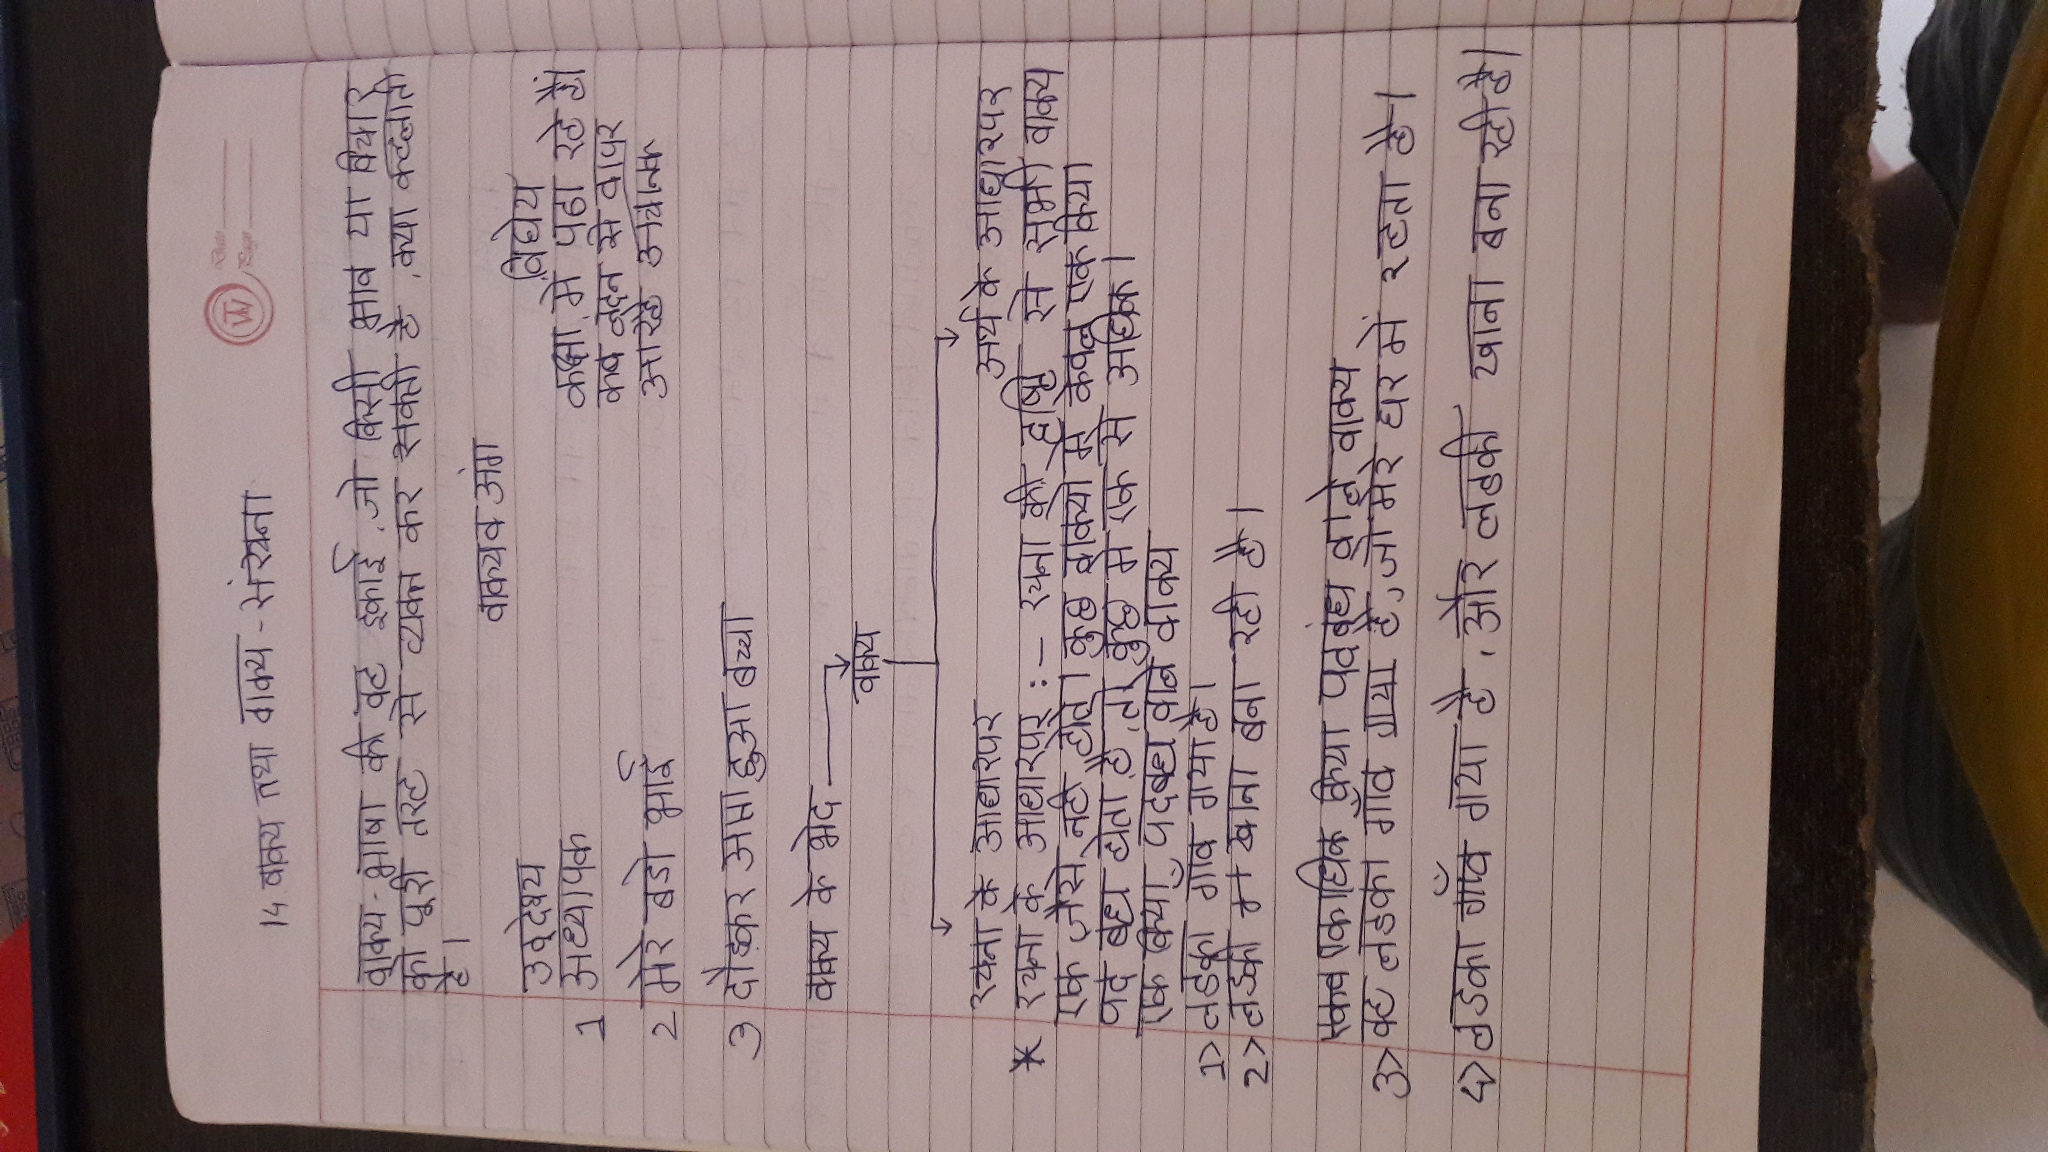 14. वाक्य तथा वाक्य - संरचना
Date
Page
वाक्य - भाषा की वह इकाई ,जो किसी भाव या विचार
को पूरी तरह से व्यक्त कर सकती है ,क्या कहलाती
है।
वाक्यव अंग
उद्देश्य विधेय
1 अध्यापक कक्षा में पढा रहे हैं।
2 मेरे बडो भाई कब लंदन से वापर
आरहे अचानक
3 दौड़कर आता हुआ बच्चा
वाक्य के भेद
वाक्य
रचना के आधारपर अर्थ के आधारपर
* रचना के आधारपर :- रचना की दृष्टि से सभी वाक्य
एक जैसे नहीं होते। कुछ वाक्यो में केवल एक क्रिया
पद बंध होता है ,तो कुछ में एक से अधिक।
एक क्रिया पदबंध वाले वाक्य
1> लडका गाव गया है।
2> लडकी खाना बना रही है।
एकाधिक क्रिया पदबंध वाले वाक्य
3> वह लडका गाव गया है ,जो मेरे घर में रहता है।
4> लडका गाँव गया है , और लडकी खाना बना रही है।